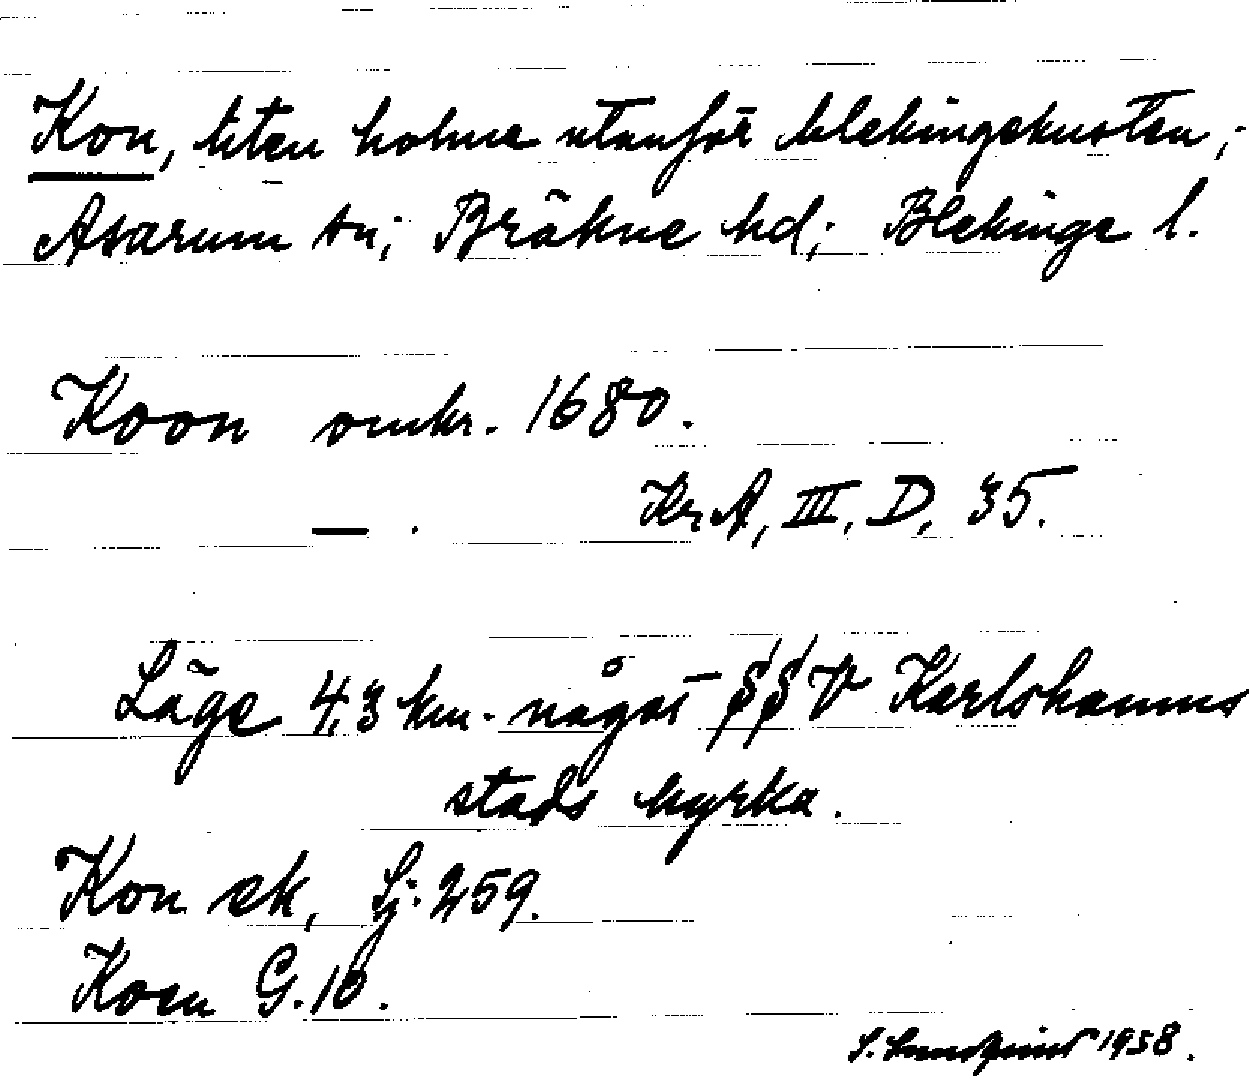 Kon, liten holme utanför blekingekusten;
Asarum sn; Bräkne hd; Blekinge l.
Koon omkr. 1680.
— . KrA, III, D, 35.
Läge 4,3 km. något SSV Karlshamns
stads kyrka.
Kon ek, Sj. 259.
Koen G. 10.
S. 1958.